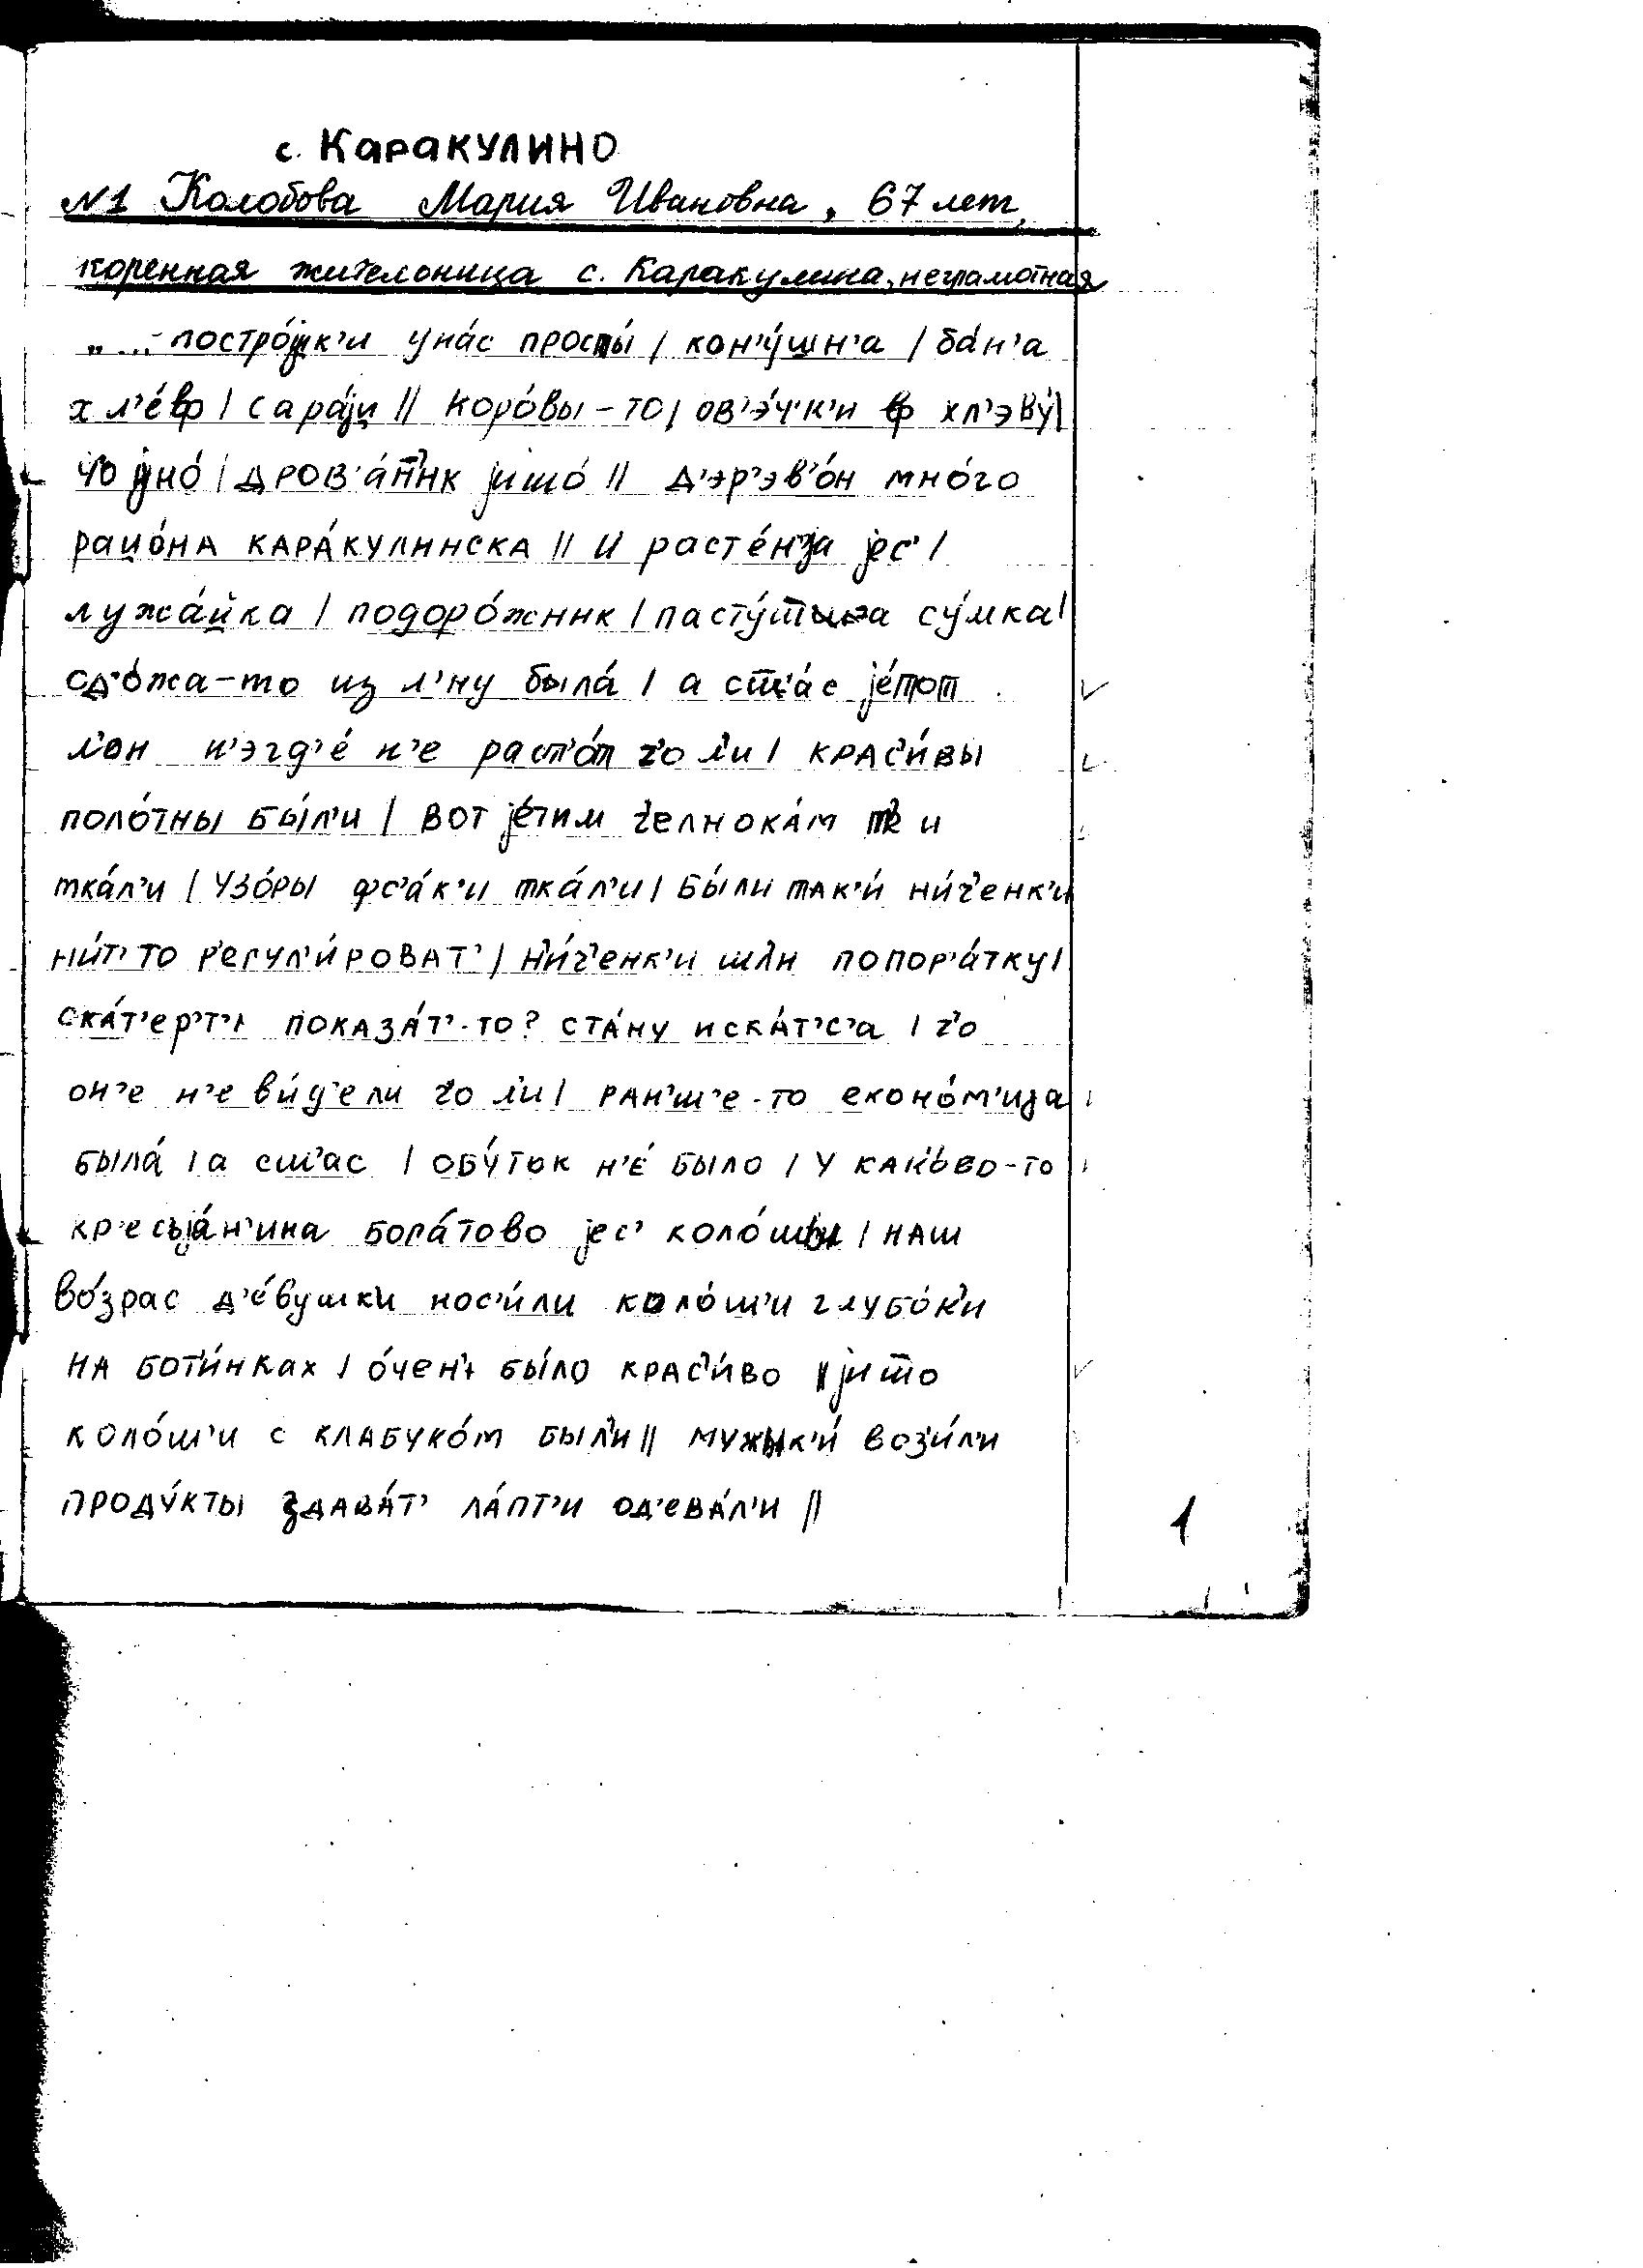 с. Каракулино
№1 Колобова Мария Ивановна, 67 лет,
коренная жительница с. Каракулина, неграмотная
„...-постро́jк'и уна́с просты́ / кон'у́шн'а / ба́н'а
хл'е́ф / сара́jи // коро́вы-то / ов'э́ч'к'и ф хл'эву́ /
чо jно́ / дров'а́н'ик jишо́ // д'эр'эв'о́н мно́го
раио́на кара́кулинска // и расте́н'jа jес' /
лужа́йка / подоро́жник / пасту́шjа су́мка /
од'о́жа-то из л'ну была́ / а сш'а́с jе́тот
л'он н'эгд'е́ н'е раст'о́т ч'о л'и / крас'и́вы
поло́тны бы́л'и / вот jе́тим ч'елнока́м и
тка́л'и / узо́ры фс'а́к'и тка́л'и / бы́ли так'и́ ни́ч'енк'и
ни́т' то р'егул'и́роват' / н'и́ч'енк'и шли попор'а́тку /
ска́т'ер'т' показа́т'-то? ста́ну иска́т'с'а / ч'о
он'е н'е ви́д'ели ч'о л'и / ран'ш'е-то еконо́м'иjа
была́ / а сш'ас / обу́ток н'е́ было / у како́во-то
кр'есьjа́н'ина бога́тово jес' коло́шы / наш
во́зрас д'е́вушк'и нос'и́ли коло́ш'и глубо́к'и
на бот'и́нках / о́чен' бы́ло крас'и́во // jишо
коло́ш'и с клабуко́м был'и // мужык'и́ воз'и́л'и
проду́кты здава́т' ла́пт'и од'ева́л'и //
1